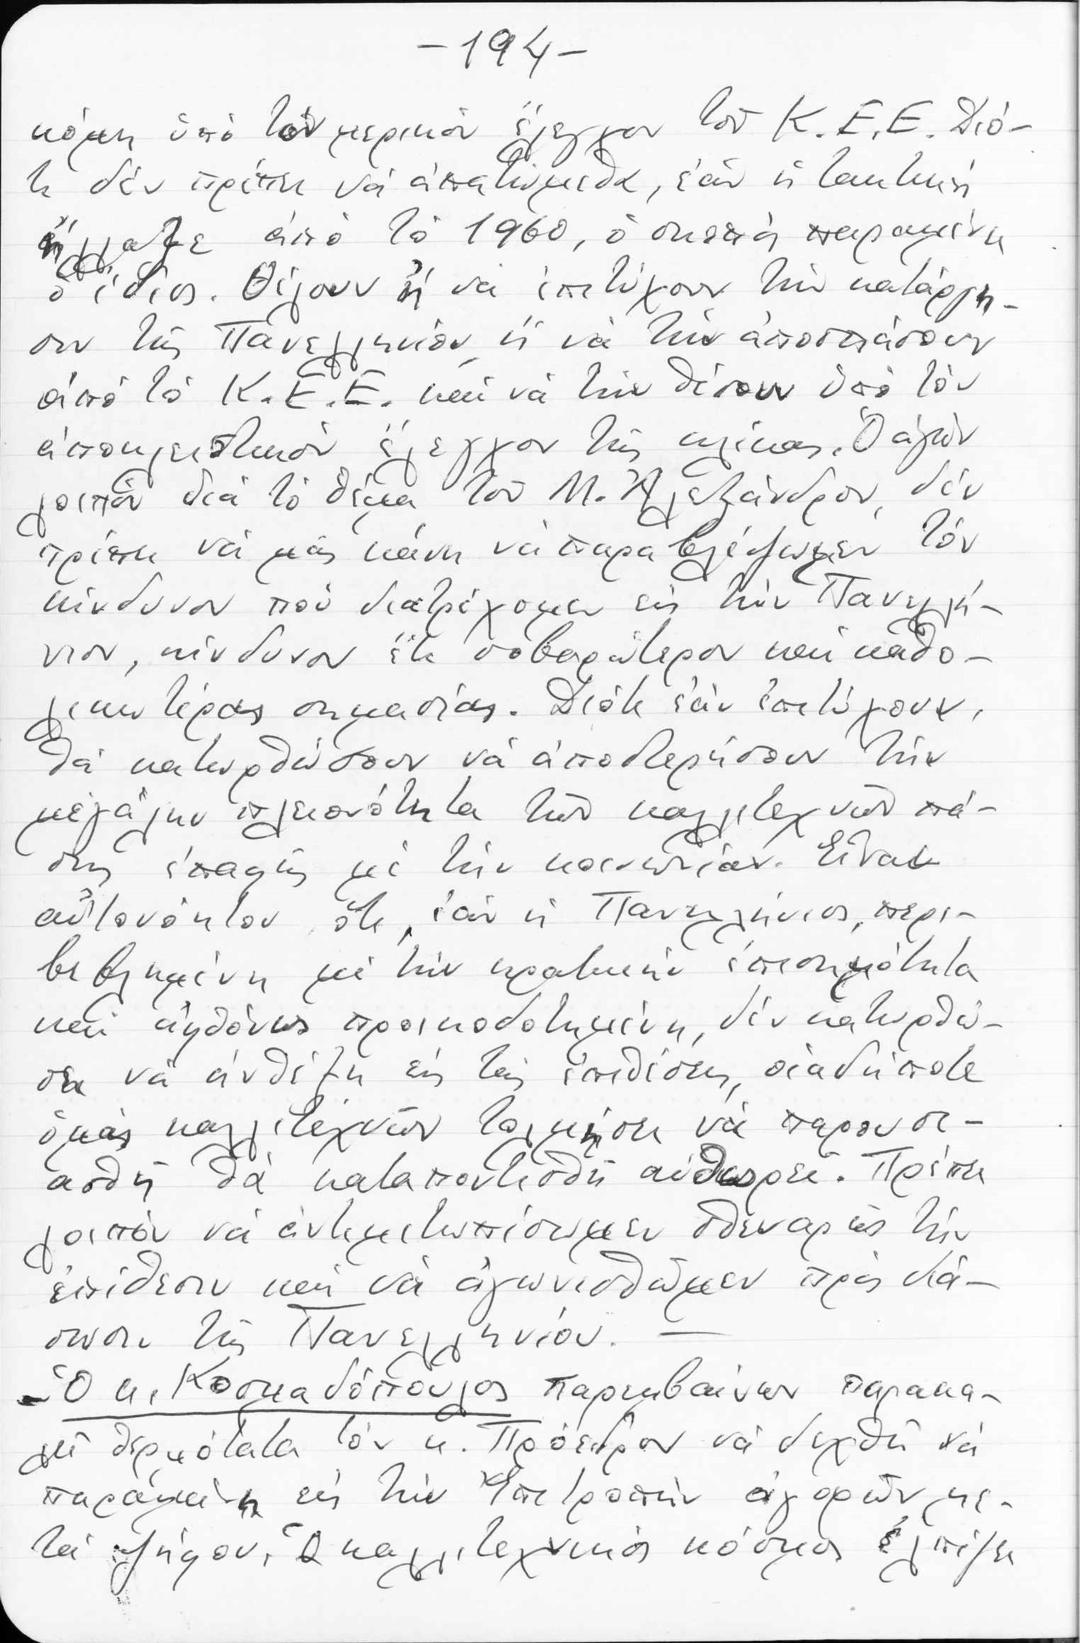 -194-
κόμη ὑπό τόν μερικόν ἔλεγχον τοῦ Κ.Ε.Ε. Διό-
τι δέν πρέπει νά ἀπατώμεθα, ἐάν ἡ τακτική
ἤλλαξε ἀπό τό 1960, ὁ σκοπός παραμένει
ὁ ἴδιος. Θέλουν ἤ νά ἐπιτύχουν τήν κατάργη-
σιν τῆς Πανελληνίου ἤ νά τήν ἀποσπάσουν
ἀπό τό Κ.Ε.Ε. καί νά τήν θέσουν ὑπό τόν
ἀποκλειστικόν ἔλεγχον τῆς κλίκας. Ὁ ἀγών
λοιπόν διά τό θέμα τοῦ Μ. Ἀλεξάνδρου, δέν
πρέπει νά μᾶς κάνη νά παραβλέψωμεν τόν
κίνδυνον πού διατρέχομεν εἰς τήν Πανελλή-
νιον, κίνδυνον ἔτι σοβαρώτερον καί καθο-
λικωτέρας σημασίας. Διότι ἐάν ἐπιτύχουν,
θά κατωρθώσουν νά ἀποστερήσουν τήν
μεγάλην πλειονότητα τῶν καλλιτεχνῶν πά-
σης ἐπαφῆς μέ τήν κοινωνίαν. Εἶναι
αὐτονόητον ὅτι, ἐάν ἡ Πανελλήνιος, περι-
βεβλημένη μέ τήν κρατικήν ἐπισημότητα
καί ἀφθόνως προικοδοτημένη, δέν κατωρθώ-
σει νά ἀνθέξη εἰς τάς ἐπιθέσεις, οἱαδήποτε
ὁμάς καλλιτεχνῶν τολμήσει νά παρουσι-
ασθῆ θά καταποντισθῆ αὐθωρεί. Πρέπει
λοιπόν νά ἀντιμετωπίσωμεν σθεναρῶς τήν
ἐπίθεσιν καί νά ἀγωνισθῶμεν πρός διά-
σωσιν τῆς Πανελληνίου. —
-Ὁ κ. Κοσμαδόπουλος παρεμβαίνων παρακα-
λεῖ θερμότατα τόν κ. Πρόεδρον νά δεχθῆ νά
παραμείνη εἰς τήν Ἐπιτροπήν ἀγορῶν με-
τά ψήφου. Ὁ καλλιτεχνικός κόσμος ἐλπίζει